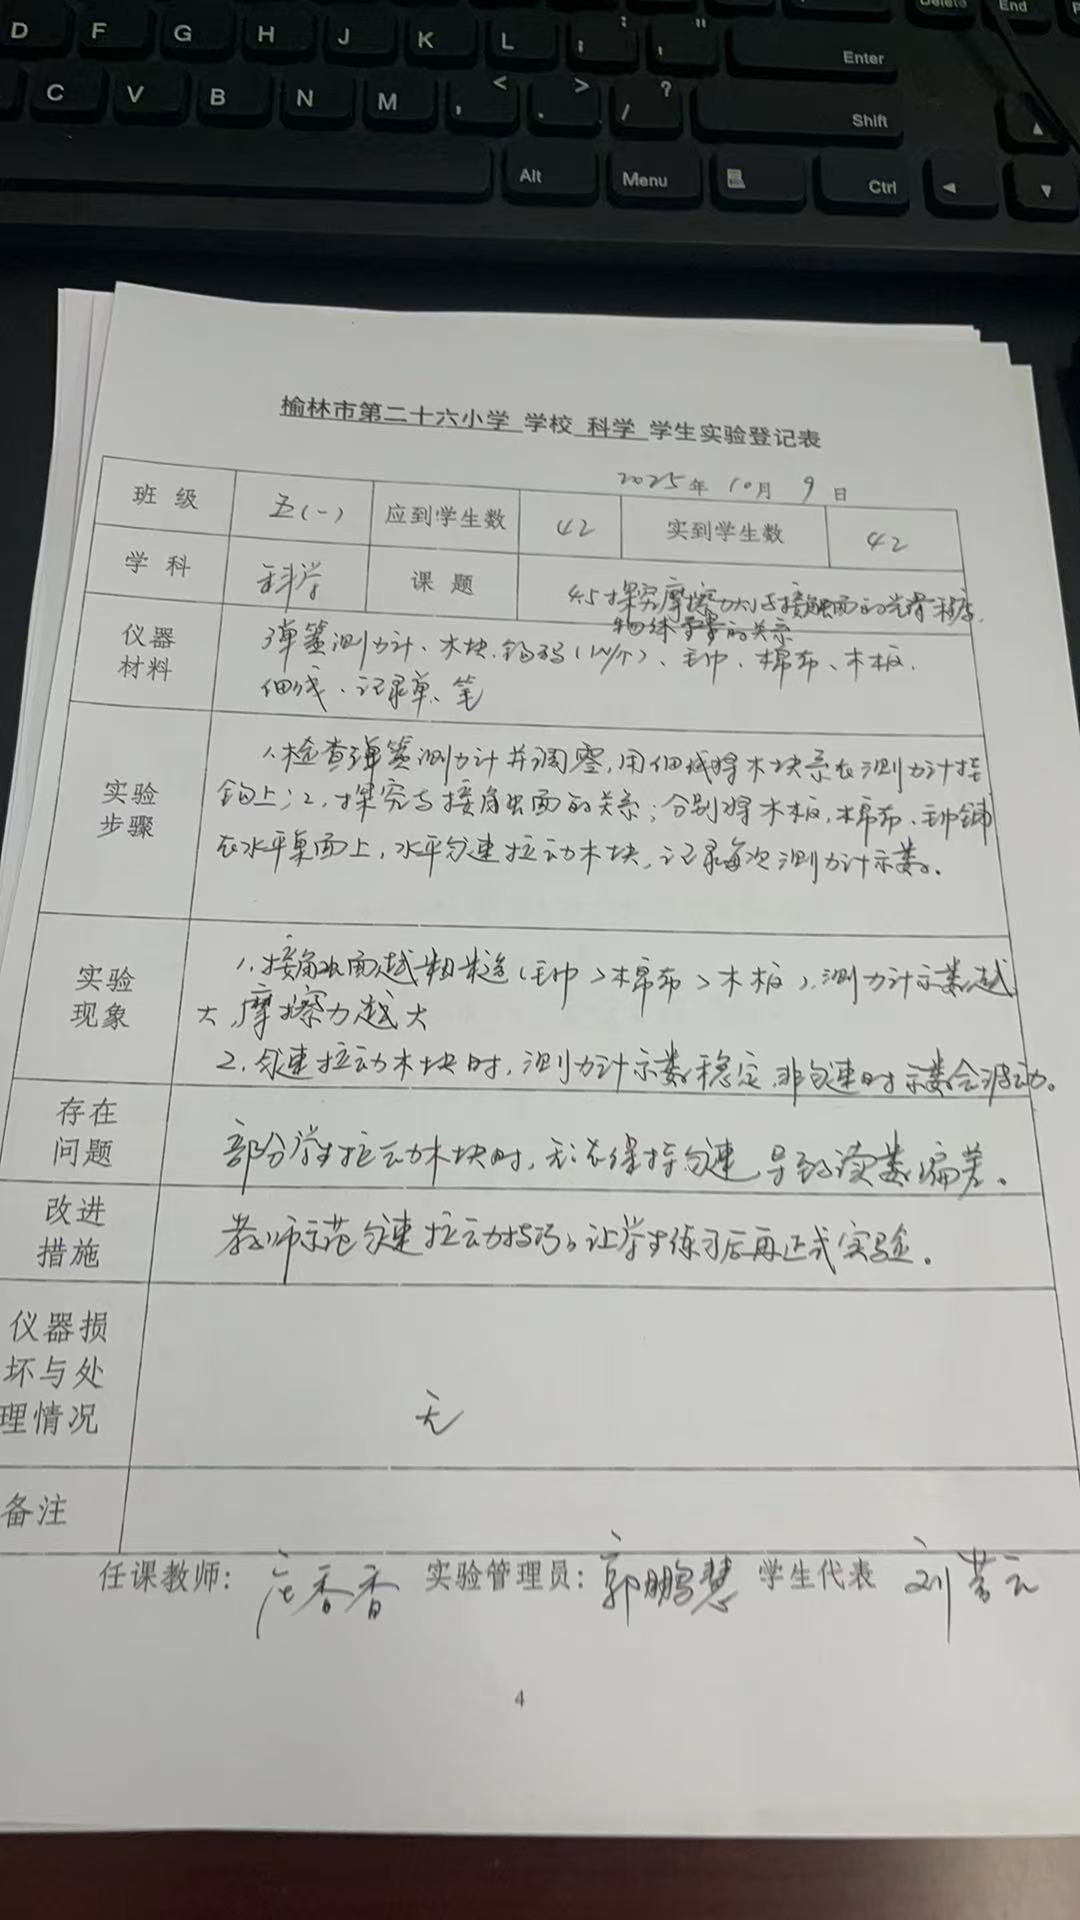 Delete End
D F G H J K L : ; " ' Enter
C V B N M < , > . ? / Shift
Alt Menu Ctrl
榆林市第二十六小学 学校 科学 学生实验登记表
2025年 10月 9日
班级 五(一) 应到学生数 42 实到学生数 42
学科 科学 课题 45探究摩擦力大小与接触面的光滑程度、
物体重量的关系
仪器材料 弹簧测力计、木块、钩码(1N/个)、毛巾、棉布、木板、
细线、记录单、笔
实验步骤 1、检查弹簧测力计并调零,用细线将木块系在测力计挂
钩上;2、探究与接触面的关系;分别将木板、棉布、毛巾铺
在水平桌面上,水平匀速拉动木块,记录每次测力计示数。
实验现象 1、接触面越粗糙(毛巾>棉布>木板),测力计示数越
大,摩擦力越大
2、匀速拉动木块时,测力计示数稳定,非匀速时示数会波动。
存在问题 部分学生拉动木块时,无法保持匀速,导致读数偏差。
改进措施 教师示范匀速拉动技巧,让学生练习后再正式实验。
仪器损坏与处理情况 无
备注
任课教师: 香香 实验管理员: 郭鹏慧 学生代表 刘
4